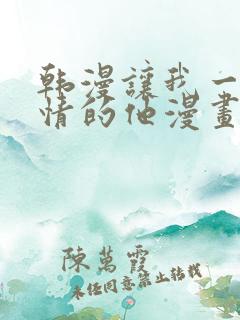 韩漫讓我一
情的他漫畫
陳萬霞
未经同意禁止转载